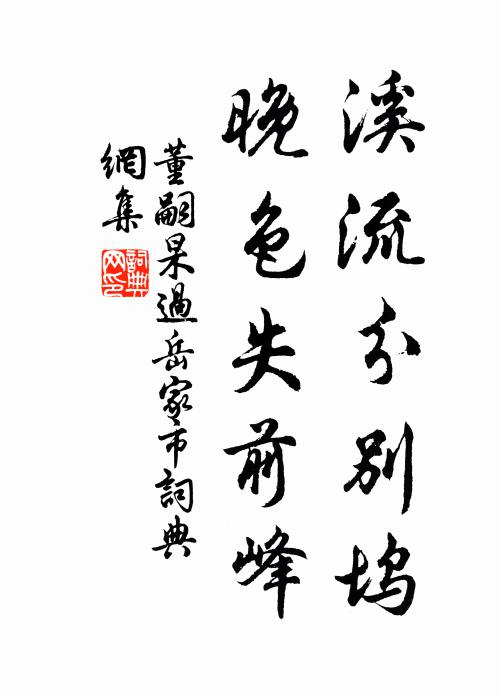 溪流分别坞
晚色失前峰
董嗣杲過岳家市詞典
網集
詞典
网印